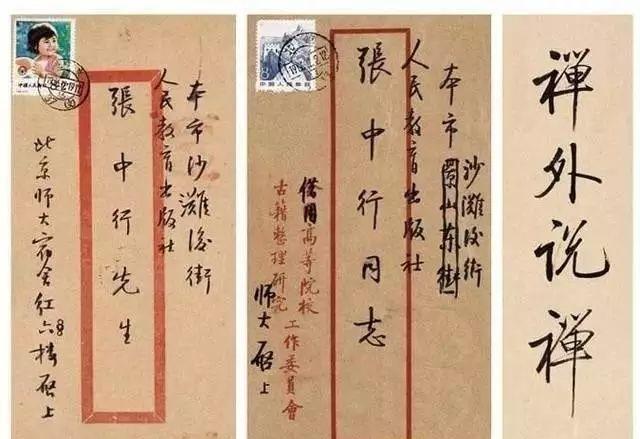 本市沙灘後街
人民教育出版社
張中行先生
北京师大宿舍红六号楼启上
中国人民邮政
本市景山东街
沙灘後街
人民教育出版社
張中行同志
借用高等院校
古籍整理研究
工作委員會
师大启上
中国人民邮政
禪外说禪